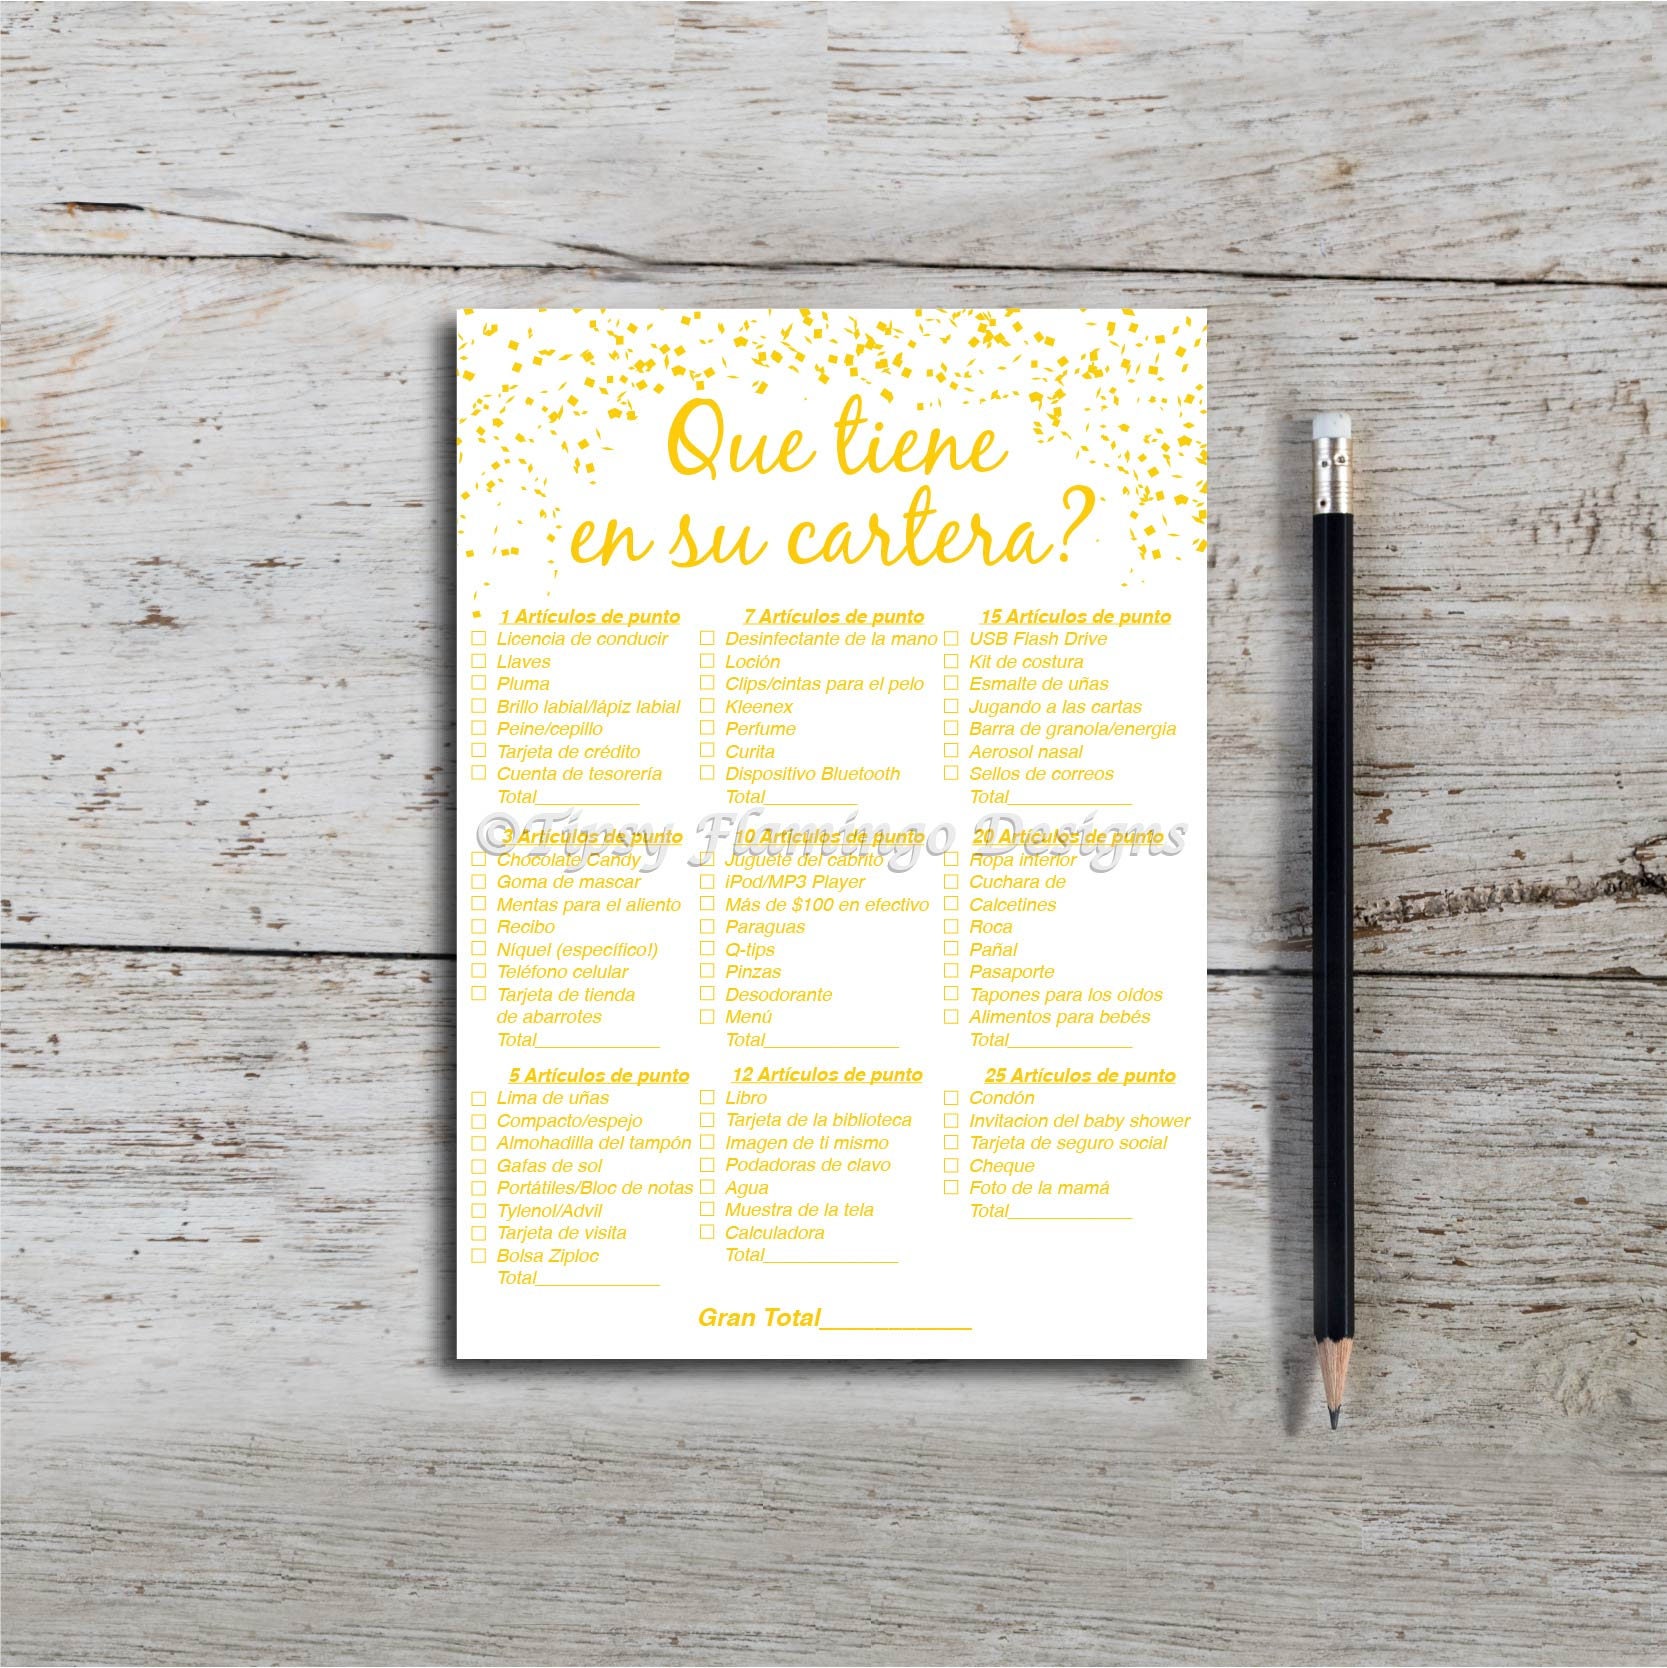 Que tiene
en su cartera?
1 Artículos de punto
Licencia de conducir
Llaves
Pluma
Brillo labial/lápiz labial
Peine/cepillo
Tarjeta de crédito
Cuenta de tesorería
Total___________
3 Artículos de punto
Chocolate Candy
Goma de mascar
Mentas para el aliento
Recibo
Níquel (específico!)
Teléfono celular
Tarjeta de tienda
de abarrotes
Total_____________
5 Artículos de punto
Lima de uñas
Compacto/espejo
Almohadilla del tampón
Gafas de sol
Portátiles/Bloc de notas
Tylenol/Advil
Tarjeta de visita
Bolsa Ziploc
Total_____________
7 Artículos de punto
Desinfectante de la mano
Loción
Clips/cintas para el pelo
Kleenex
Perfume
Curita
Dispositivo Bluetooth
Total__________
10 Artículos de punto
Juguete del cabrito
iPod/MP3 Player
Más de $100 en efectivo
Paraguas
Q-tips
Pinzas
Desodorante
Menú
Total______________
12 Artículos de punto
Libro
Tarjeta de la biblioteca
Imagen de ti mismo
Podadoras de clavo
Agua
Muestra de la tela
Calculadora
Total______________
15 Artículos de punto
USB Flash Drive
Kit de costura
Esmalte de uñas
Jugando a las cartas
Barra de granola/energia
Aerosol nasal
Sellos de correos
Total_____________
20 Artículos de punto
Ropa interior
Cuchara de
Calcetines
Roca
Pañal
Pasaporte
Tapones para los oídos
Alimentos para bebés
Total_____________
25 Artículos de punto
Condón
Invitacion del baby shower
Tarjeta de seguro social
Cheque
Foto de la mamá
Total_____________
Gran Total___________
©Tipsy Flamingo Designs